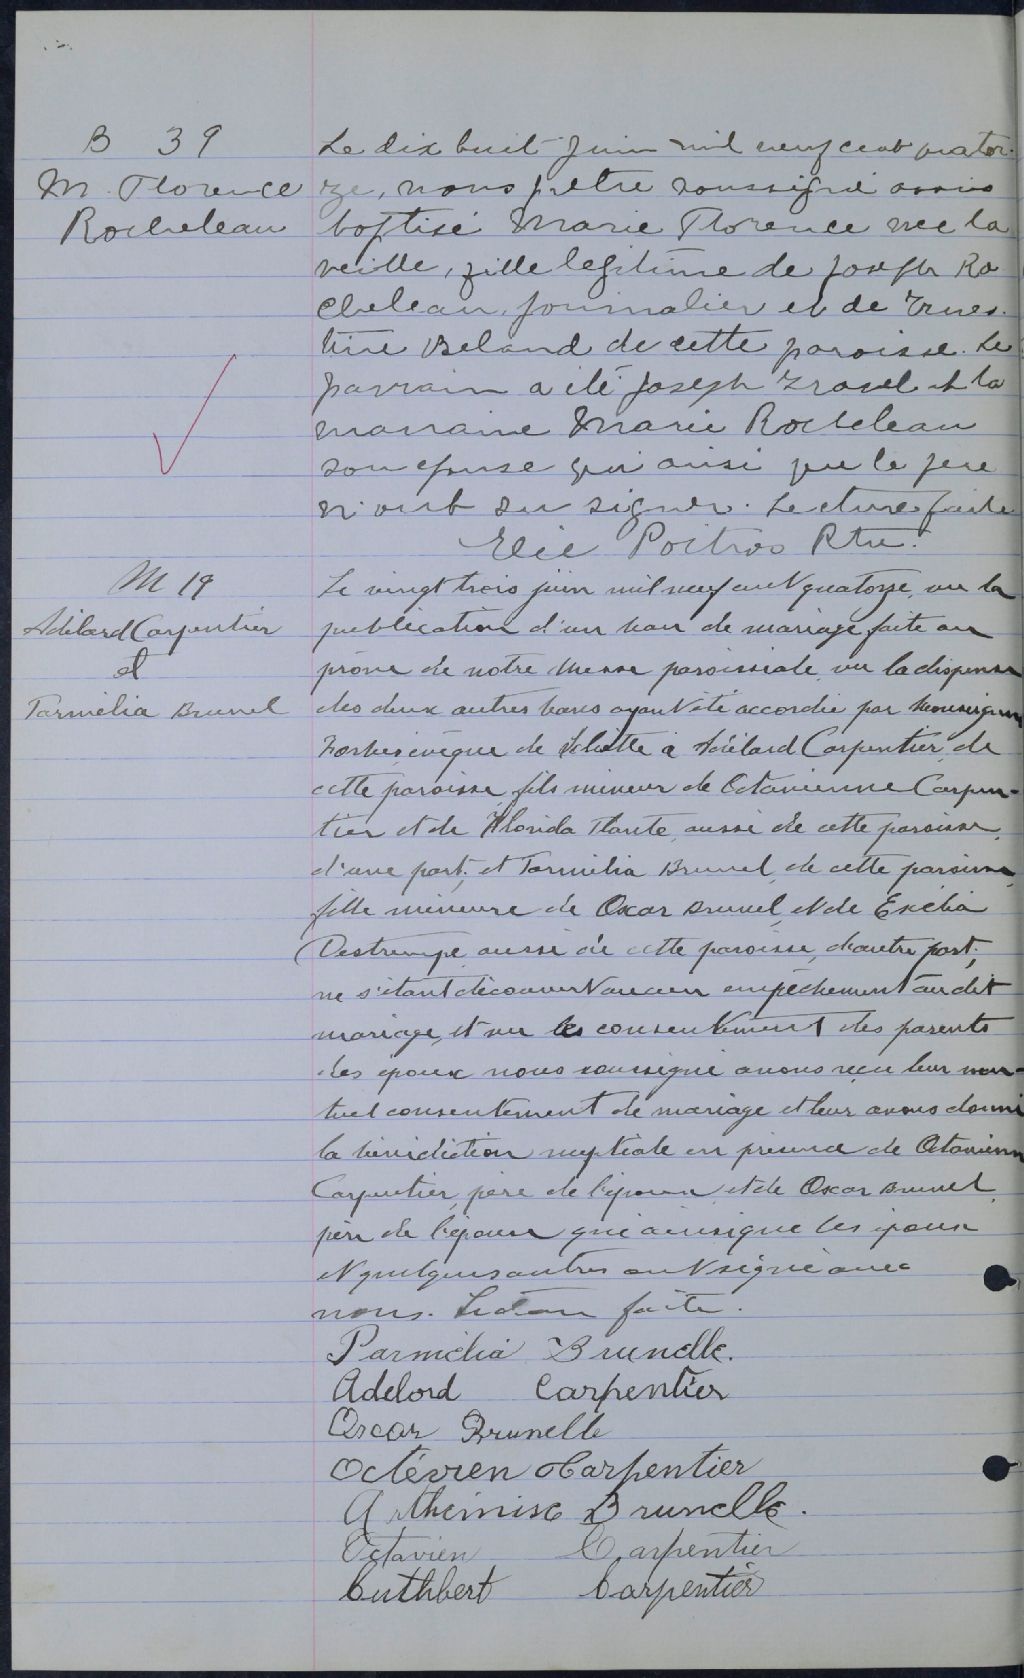 B 39
M. Florence
Rocheleau
Le dix huit juin mil neuf cent quator-
ze, nous prêtre soussigné avons
baptisé Marie Florence née la
veille, fille légitime de Joseph Ro
cheleau, journalier et de Ernes-
tine Beland de cette paroisse. Le
parrain a été Joseph et la
marraine Marie Rocheleau
son épouse qui ainsi que le père
n'ont su signer. Lecture faite
Elie Poitras Ptre.
M 19
Adélard Carpentier
et
Parmélia Brunel
Le vingt trois juin mil neuf cent quatorze, vu la
publication d'un ban de mariage faite au
prône de notre Messe paroissiale, vu la dispense
des deux autres bans ayant été accordée par Monseigneur
Forbes, évêque de Joliette à Adélard Carpentier, de
cette paroisse, fils mineur de Octavienne Carpen-
tier et de Florida Plante, aussi de cette paroisse,
d'une part; et Parmélia Brunel, de cette paroisse,
fille mineure de Oscar Brunel, et de Exélia
Destrempe aussi de cette paroisse, d'autre part;
ne s'étant découvert aucun empêchement au dit
mariage, et vu les consentement des parents
des époux nous soussigné avons reçu leur mu-
tuel consentement de mariage et leur avons donné
la bénédiction nuptiale en présence de Octavienne
Carpentier, père de l'époux, et de Oscar Brunel,
père de l'épouse qui ainsi que les époux
et quelques autres ont signé avec
nous. Lecture faite.
Parmélia Brunelle.
Adelord Carpentier
Oscar Brunelle
Octévien Carpentier
Arthémise Brunelle.
Octavien Carpentier
Cuthbert Carpentier